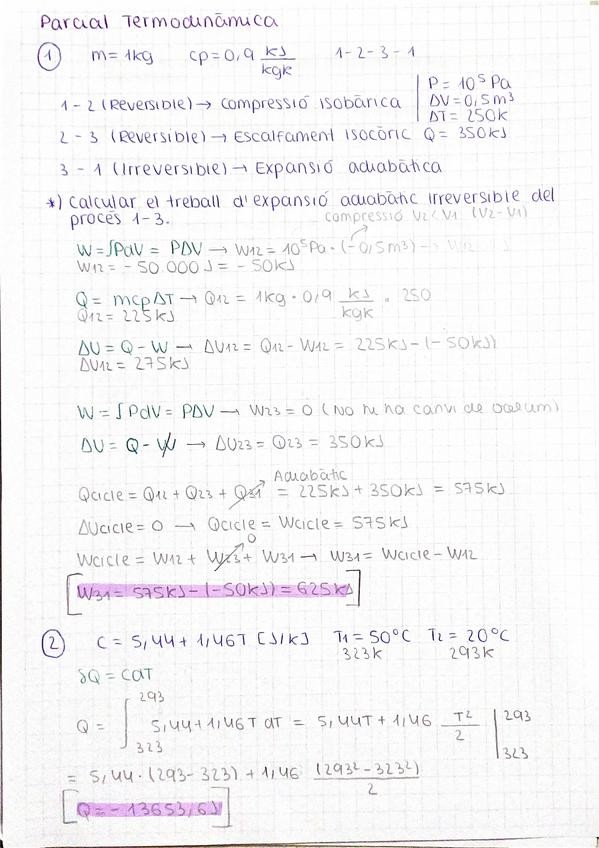 Parcial Termodinàmica
1 m = 1kg cp = 0,9 kJ/kgK 1-2-3-1
1-2 (Reversible) → compressió isobàrica P = 10⁵ Pa
ΔV = 0,5m³
ΔT = 250K
2-3 (Reversible) → Escalfament isocòric Q = 350kJ
3-1 (Irreversible) → Expansió adiabàtica
*) Calcular el treball d'expansió adiabàtic irreversible del
procés 1-3.
compressió V2<V1 (V2-V1)
W = ∫PdV = PΔV → W12 = 10⁵Pa · (-0,5m³) → W12
W12 = -50.000J = -50kJ
Q = mcpΔT → Q12 = 1kg · 0,9 kJ/kgK · 250
Q12 = 225kJ
ΔU = Q - W → ΔU12 = Q12 - W12 = 225kJ - (-50kJ)
ΔU12 = 275kJ
W = ∫PdV = PΔV → W23 = 0 (No hi ha canvi de volum)
ΔU = Q - W → ΔU23 = Q23 = 350kJ
Adiabàtic
Qcicle = Q12 + Q23 + Q31 = 225kJ + 350kJ = 575kJ
ΔUcicle = 0 → Qcicle = Wcicle = 575kJ
0
Wcicle = W12 + W23 + W31 → W31 = Wcicle - W12
W31 = 575kJ - (-50kJ) = 625kJ
2 C = 5,44 + 1,46T [J/K] T1 = 50°C T2 = 20°C
323K 293K
δQ = CdT
Q = ∫ 293 323 5,44 + 1,46T dT = 5,44T + 1,46 T²/2 | 293 323
= 5,44 · (293-323) + 1,46 (293² - 323²)/2
Q = -13653,6J